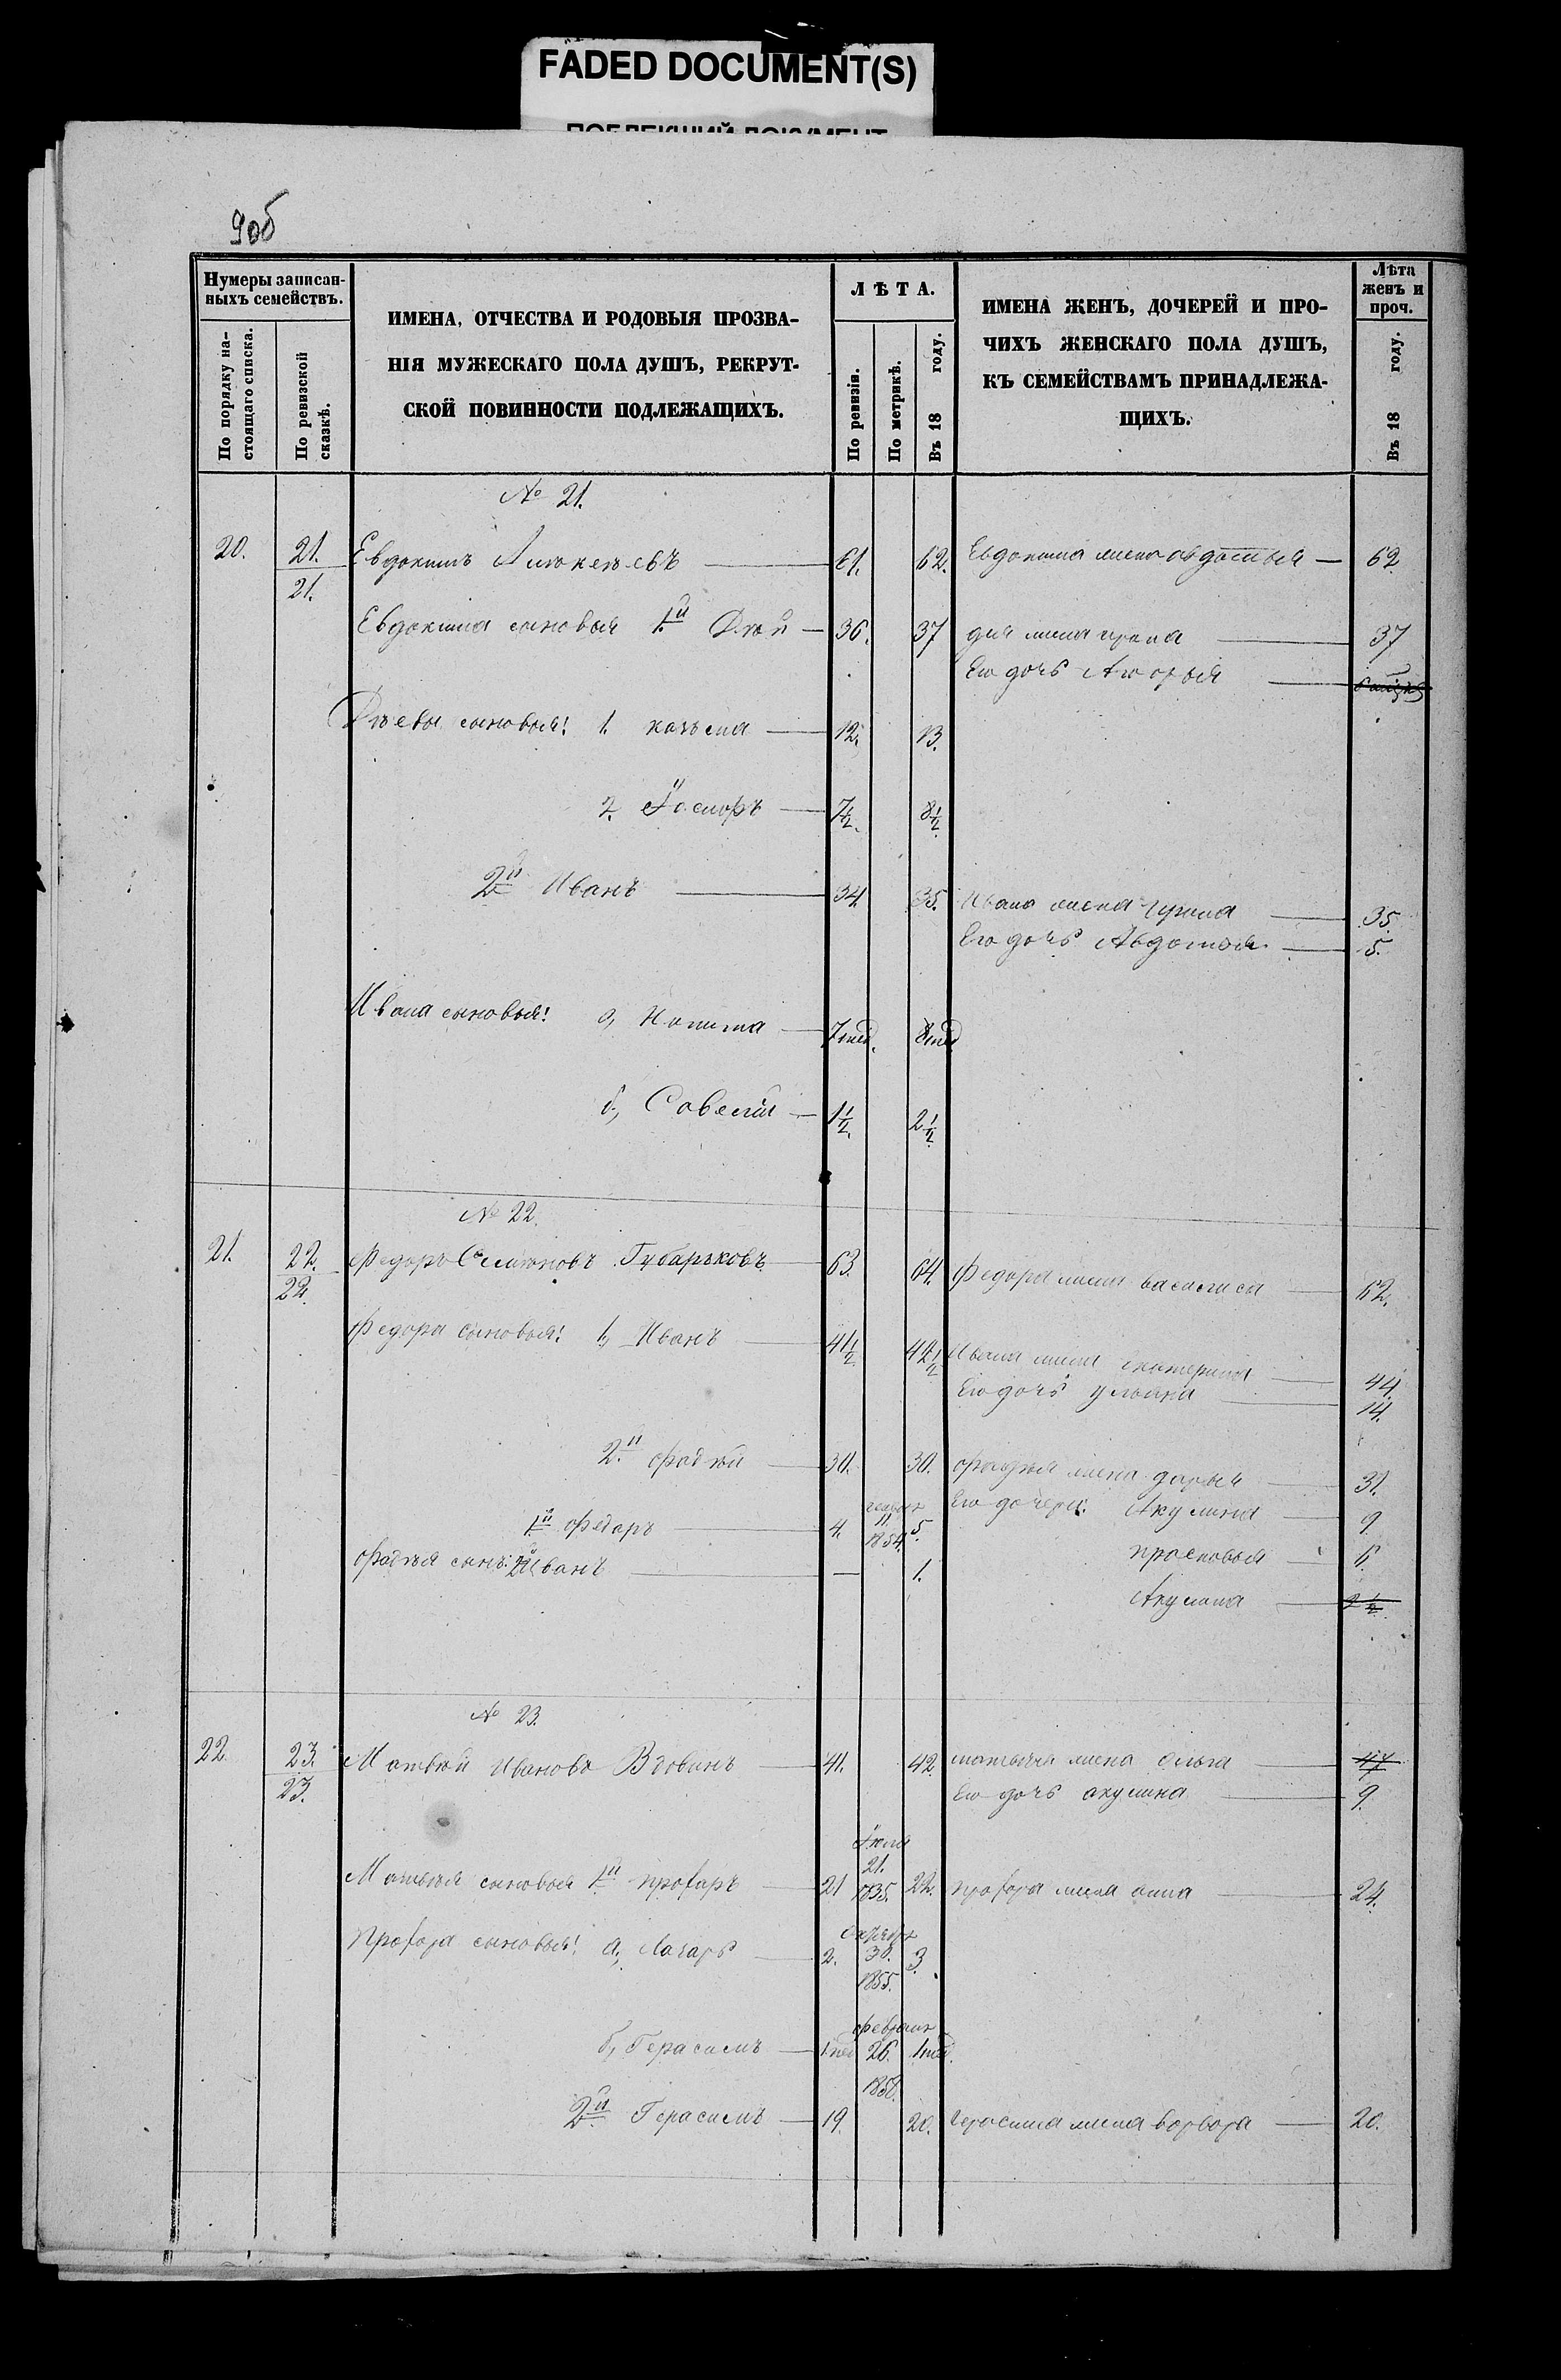 FADED DOCUMENT(S)
ПОБЛЕКШИЙ ДОКУМЕНТ
9об
Нумеры записан-
ныхъ семействъ.
По порядку на-
стоящаго списка.
По ревизской
сказкѣ.
ИМЕНА, ОТЧЕСТВА И РОДОВЫЯ ПРОЗВА-
НІЯ МУЖЕСКАГО ПОЛА ДУШЪ, РЕКРУТ-
СКОЙ ПОВИННОСТИ ПОДЛЕЖАЩИХЪ.
ЛѢТА.
По ревизіи.
По метрикѣ.
Въ 18 году.
ИМЕНА ЖЕНЪ, ДОЧЕРЕЙ И ПРО-
ЧИХЪ ЖЕНСКАГО ПОЛА ДУШЪ,
КЪ СЕМЕЙСТВАМЪ ПРИНАДЛЕЖА-
ЩИХЪ.
Лѣта
женъ и
проч.
Въ 18 году.
№ 21.
20. 21. Евдокимъ 61. 62. Евдокима жена авдотья 62
21.
Евдокима сыновья 1й 36. 37 жена 37
Его дочь
сыновья: 1. козьма 12. 13.
2. 7½. 8½
2й Иванъ 34. 35. Ивана жена 35.
Его дочь Авдотья 5.
Ивана сыновья: а, Никита 7 нед. 8 нед
б, Савелiй 1½. 2½
№ 22.
21. 22. Федоръ Семионовъ Губарьковъ 63. 64. Федора жена василиса 62.
22.
Федора сыновья: 1, Иванъ 41½ 42½ Ивана жена екатерина 44.
Его дочь ульяна 14.
2й фадѣй 30. фадѣя жена дарья 31.
1й федаръ 4. 11 1854. 5. Его дочери: Акулина 9
фадѣя сынъ: 2й Иванъ — 1. просковья 6.
Акулина 2½
№ 23.
22. 23. Матвѣй Ивановъ Вдовинъ 41. 42. матвѣя жена ольга 47
23. Его дочь акулина 9.
Матвѣя сыновья 1й профаръ 21 21. 1835. 22. профора жена анна 24.
Профора сыновья: а, Лазарь 2. 30. 1855. 3.
б, Герасимъ 1 нед 26. 1858. 1 нед.
2й Герасимъ 19. 20. герасима жена ворвора 20.